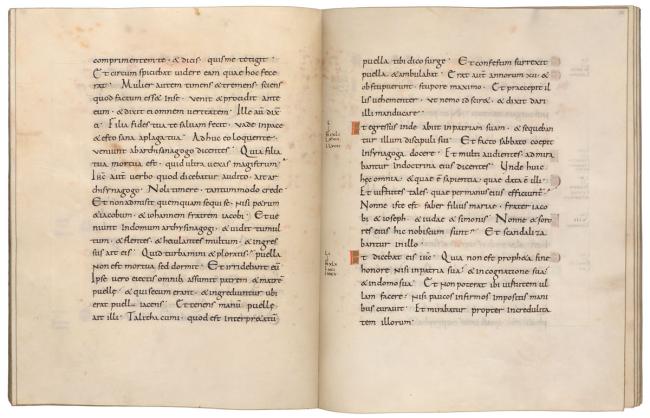 comprimentem te · & dicis · quis me tetigit ·
Et circum spiciebat videre eam quae hoc fece
rat · Mulier autem timens & tremens sciens
quod factum ess& in se · venit & procidit ante
eum · & dixit ei omnem veritatem · Ille aū dix
 · Filia fides tua te salvam fecit · vade in pace
& esto sana a plaga tua · Adhuc eo loquente ·
veniunt ab archisinagogo dicentes · Quia filia
tua mortua est · quid ultra vexas magistrum
Ihc aut verbo quod dicebatur audito · ait ar
chisynagogo · Noli timere · tantummodo crede
Et non admisit quemquam sequi se · nisi petrum
& iacobum · & iohannem fratrem iacobi · Et ve
niunt In domum archisynagogi · & vidit tumul
tum · & flentes · & heiulantes multum · & ingres
sus ait eis · Quid turbamini & ploratis · puella
Non est mortua sed dormit · Et irridebant eū
Ipse vero eiectis omnib; assumit patrem & matrē
puellę · & qui secum erant · & ingrediuntur ubi
erat puella iacens · Et tenens manū puellę
ait illi · Talitha cumi · quod est interpretatū
puella tibi dico surge · Et confestim surrexit
puella & ambulabat · Erat aut annorum xii · &
obstupuerunt · stupore maximo · Et praecepit il
lis vehementer · ut nemo id scir& · & dixit dari
illi manducare ·
Et egressus inde abiit in patriam suam · & sequeban
tur illum discipuli sui · Et facto sabbato coepit
in synagoga docere · Et multi audientes admira
bantur in doctrina eius dicentes · Unde huic
hęc omnia · & quae ē sapientia · quae data ē illi ·
Et virtutes tales · quae per manus eius efficiunt ·
Nonne iste est faber filius mariae · frater iaco
bi · & ioseph · & iudae & simonis · Nonne & soro
res eius hic nobiscum sunt · Et scandaliza
bantur in illo ·
Et dicebat eis ihc · Quia non est proph&a sine
honore nisi in patria sua · & in cognatione sua
& in domo sua · Et non poterat ibi virtutem ul
lam facere · nisi paucos infirmos impositis mani
bus curavit · Et mirabatur propter incredulita
tem illorum ·